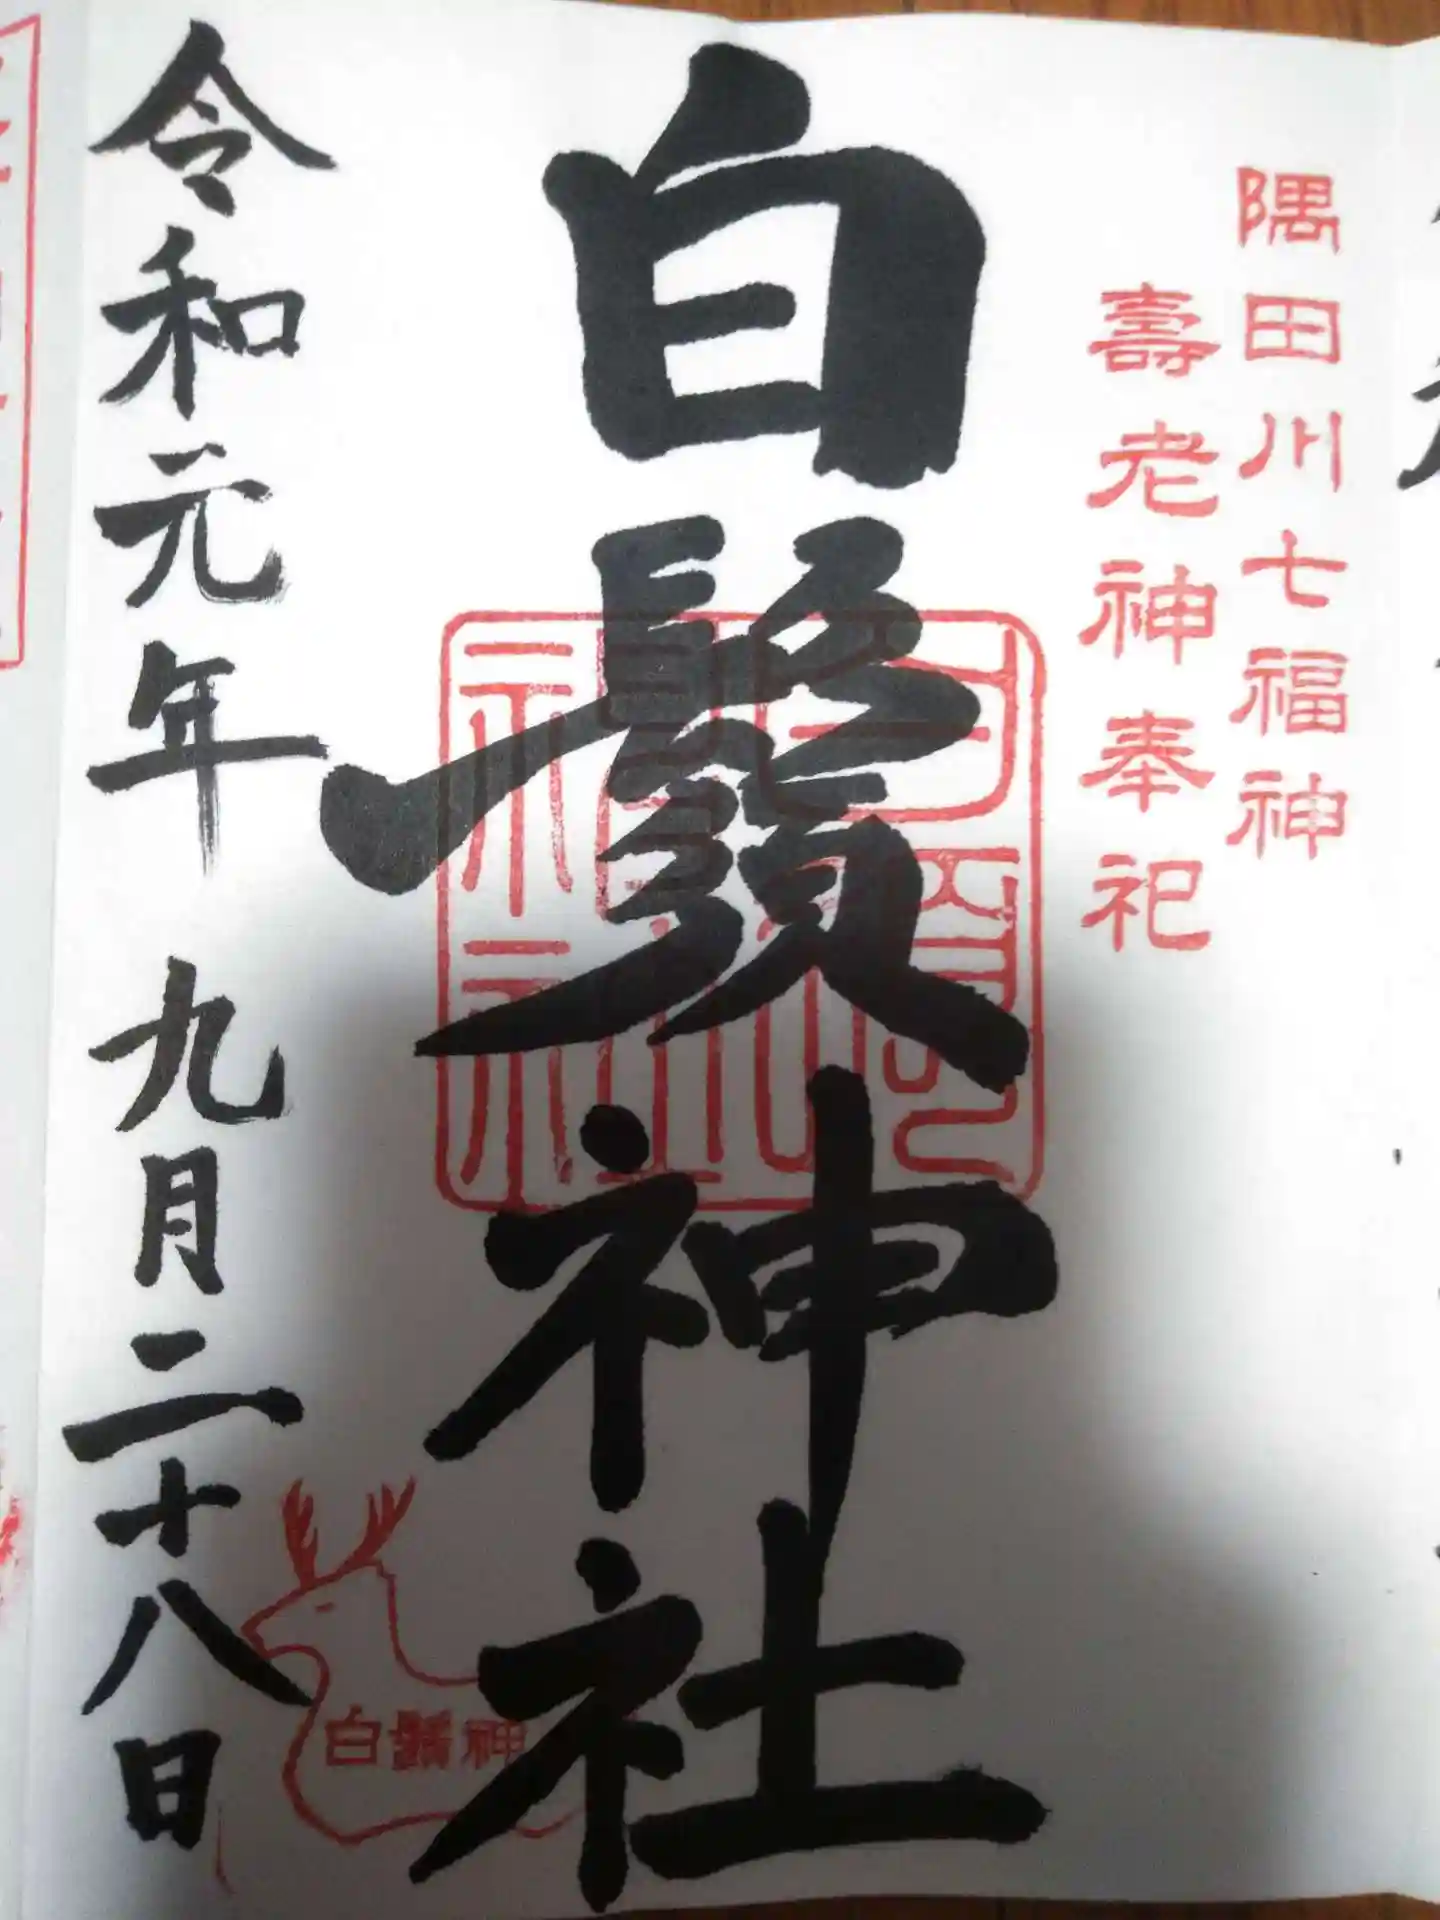 隅田川七福神
壽老神奉祀
白鬚神社
白鬚神
令和元年 九月二十八日